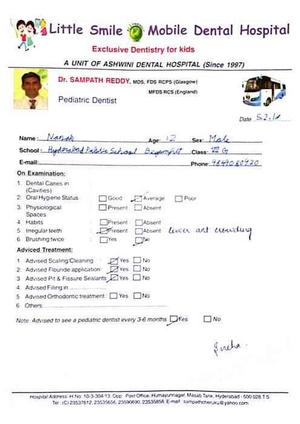 Little Smile Mobile Dental Hospital
Exclusive Dentistry for kids
A UNIT OF ASHWINI DENTAL HOSPITAL (Since 1997)
Dr. SAMPATH REDDY, MDS, FDS RCPS (Glasgow)
MFDS RCS (England)
Pediatric Dentist
Date 5.2.10
Name: Age: 12 Sex: Male
School: Hyderabad Public School Begumpet Class: VII G
E-mail: Phone:
On Examination:
1 Dental Caries in (Cavities)
2 Oral Hygiene Status Good Average Poor
3 Physiological Spaces Present Absent
4 Habits Present Absent
5 Irregular teeth Present Absent lower ant crowding
6 Brushing twice Yes No
Adviced Treatment:
1 Advised Scaling/Cleaning Yes No
2 Advised Flouride application Yes No
3 Advised Pit & Fissure Sealants Yes No
4 Advised Filling in
5 Advised Orthodontic treatment Yes No
6 Others
Note: Advised to see a pediatric dentist every 3-6 months Yes No
Hospital Address: H.No. 10-3-304-13, Opp. Post Office, Humayunnagar, Masab Tank, Hyderabad - 500 028 T.S